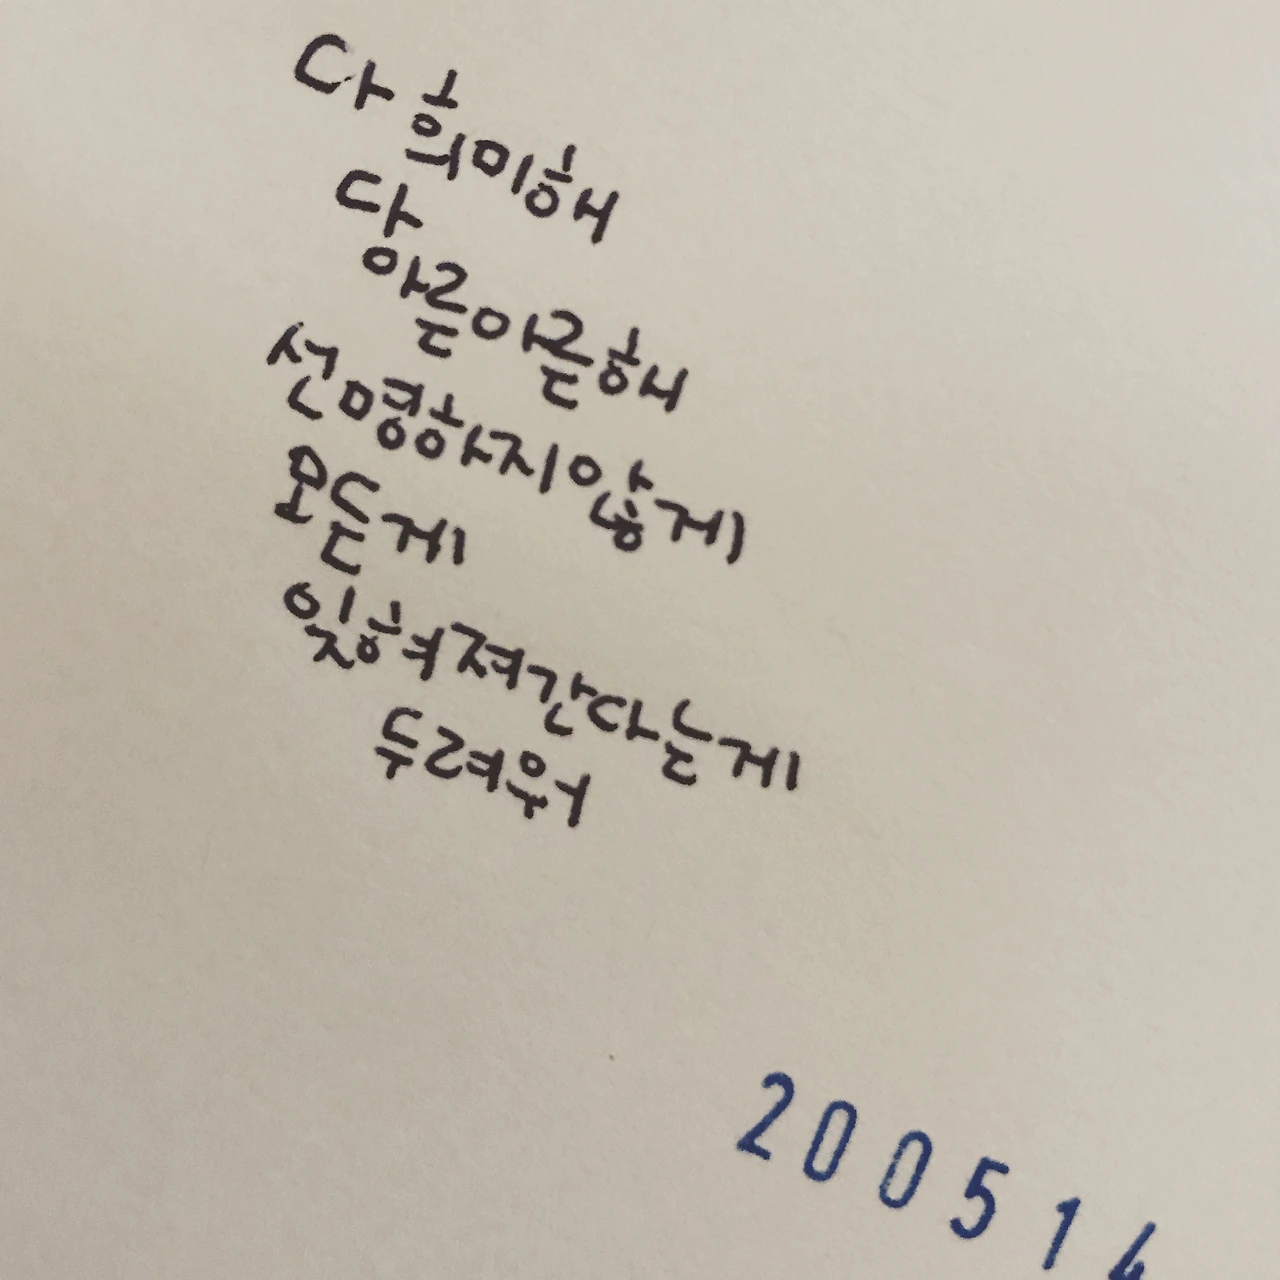 다 희미해
다 아른아른해
선명하지않게
모든게
잊혀져간다는게
두려워
200514